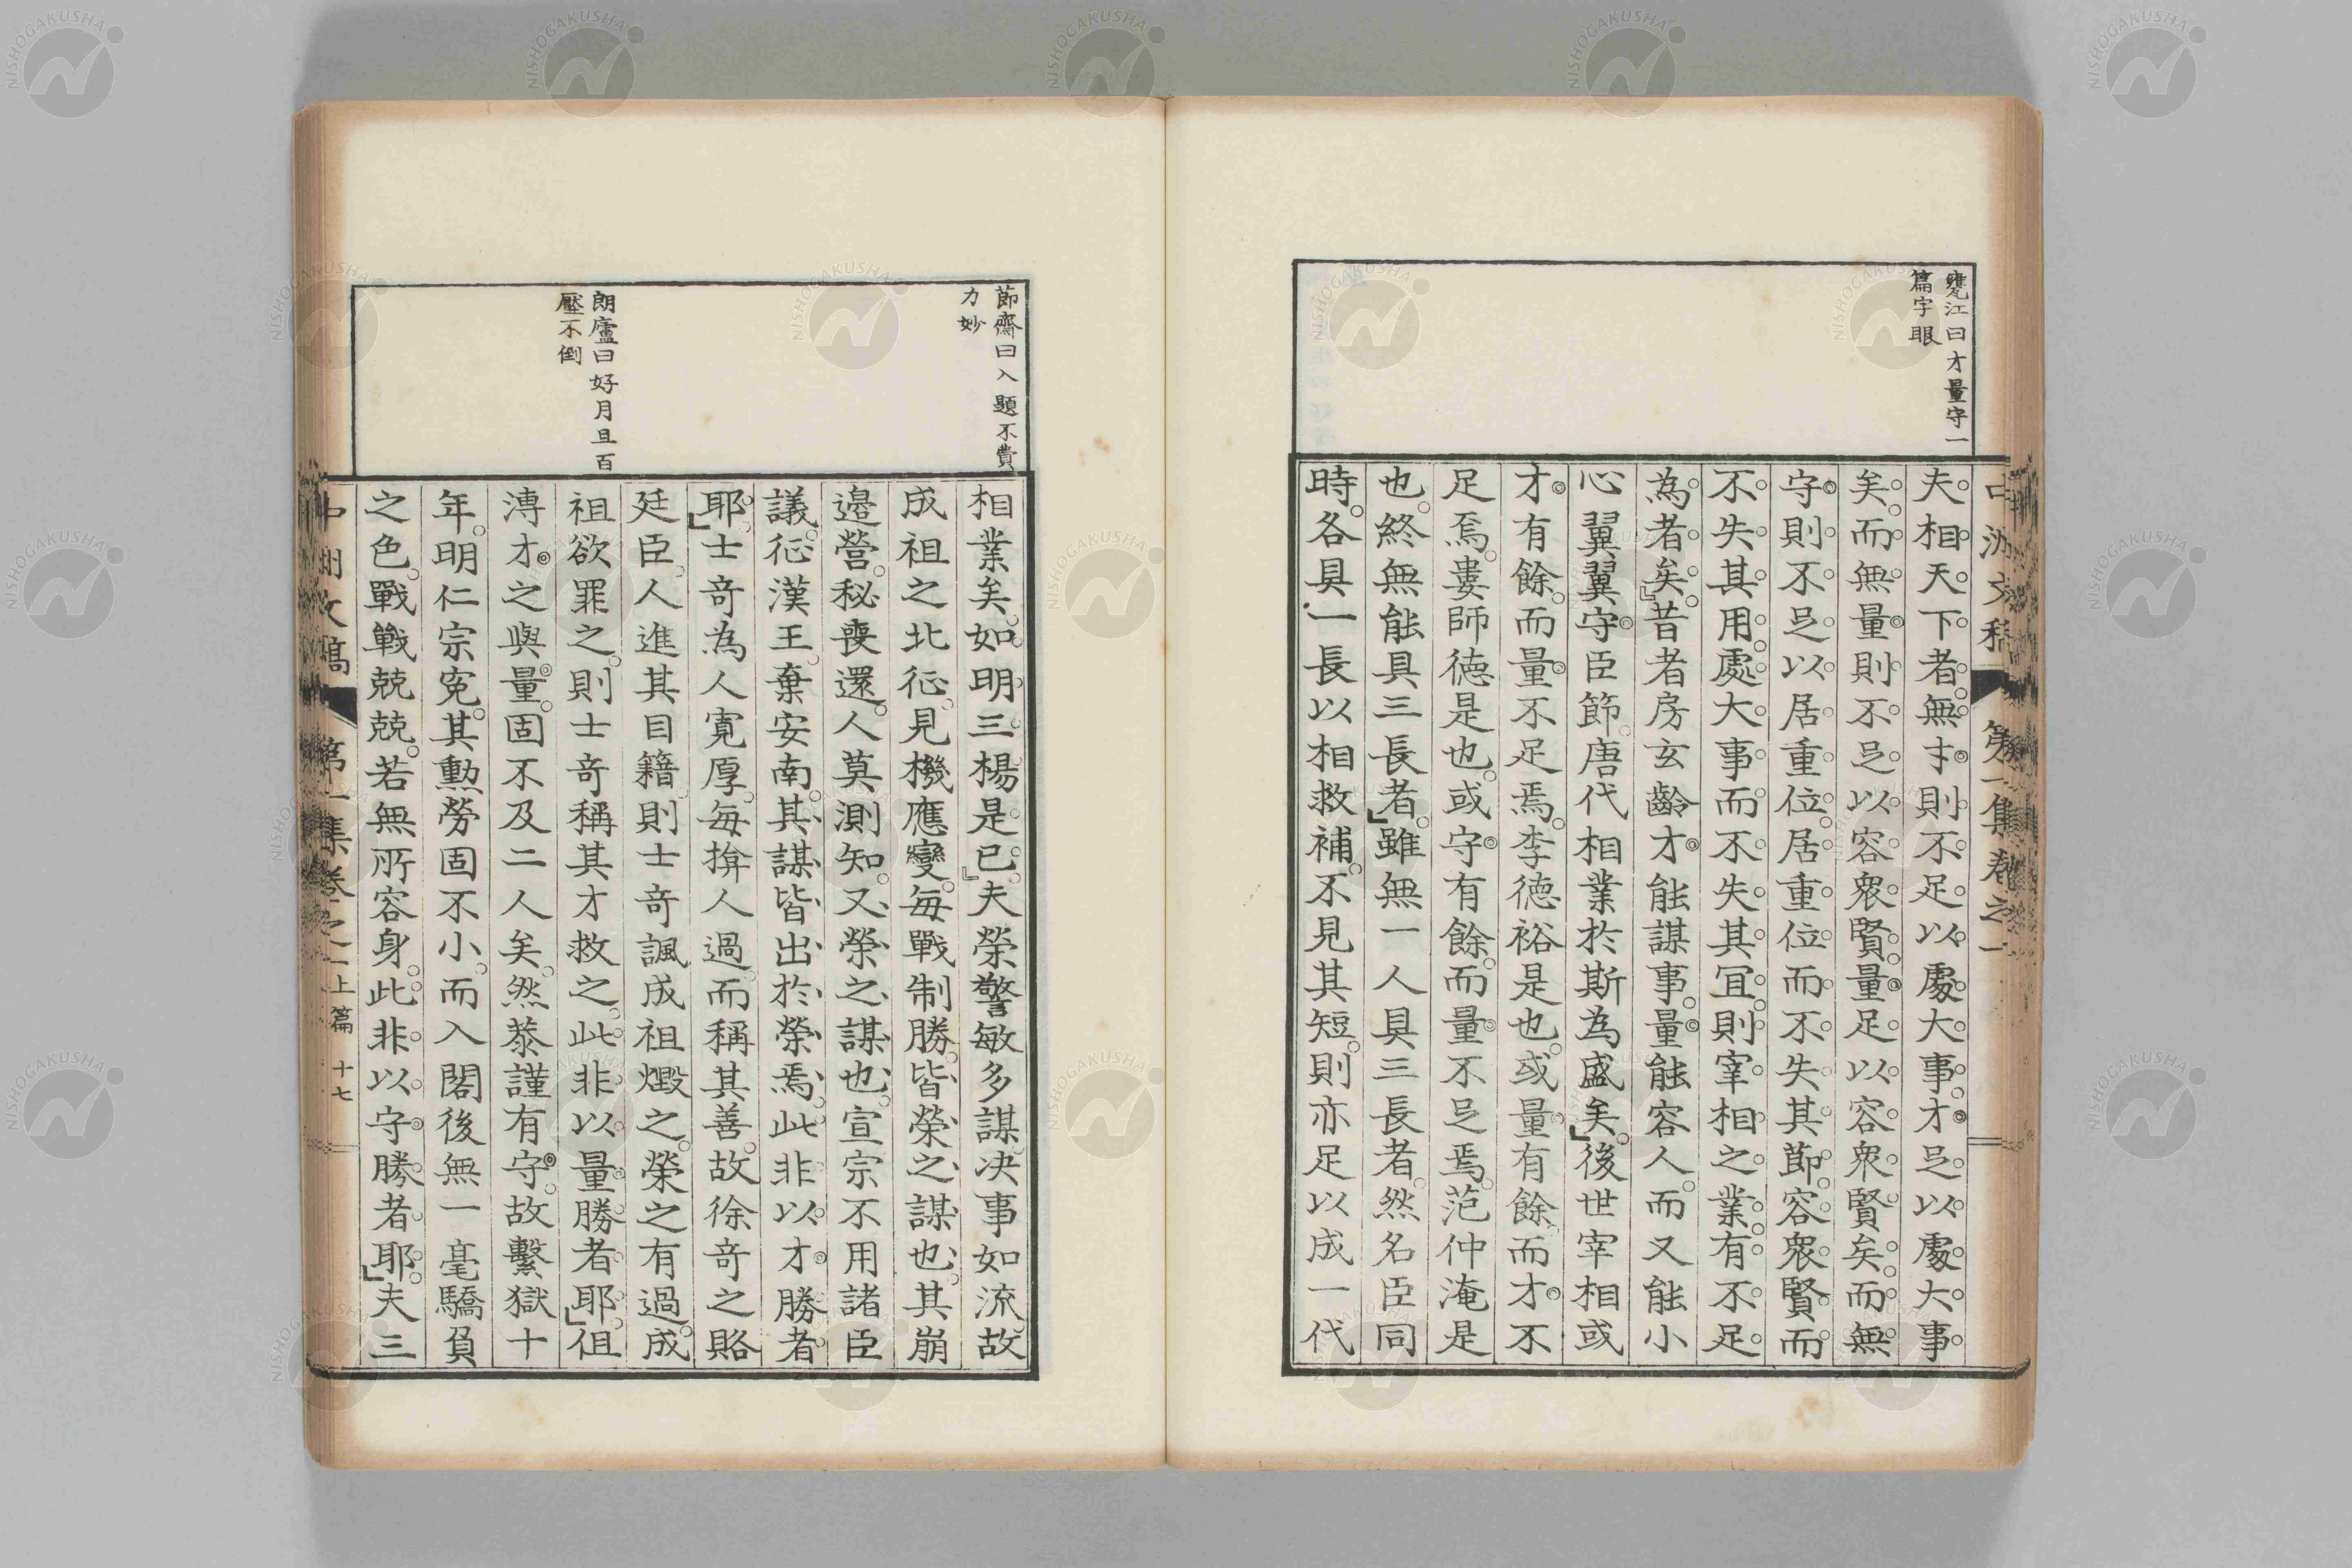 甕江曰才量守一
篇字眼
夫相天下者無才則不足以處大事才足以處大事
矣而無量則不足以容衆賢量足以容衆賢矣而無
守則不足以居重位居重位而不失其節容衆賢而
不失其用處大事而不失其宜則宰相之業有不足
為者矣昔者房玄齡才能謀事量能容人而又能小
心翼翼守臣節唐代相業於斯為盛矣後世宰相或
才有餘而量不足焉李德裕是也或量有餘而才不
足焉婁師德是也或守有餘而量不足焉范仲淹是
也終無能具三長者雖無一人具三長者然名臣同
時各具一長以相救補不見其短則亦足以成一代
節齋曰入題不費
力妙
朗廬曰好月旦百
壓不倒
相業矣如明三楊是已夫榮警敏多謀决事如流故
成祖之北征見機應變每戰制勝皆榮之謀也其崩
邊營秘喪還人莫測知又榮之謀也宣宗不用諸臣
議征漢王棄安南其謀皆出於榮焉此非以才勝者
耶士奇為人寬厚每揜人過而稱其善故徐奇之賂
廷臣人進其目籍則士奇諷成祖燬之榮之有過成
祖欲罪之則士奇稱其才救之此非以量勝者耶徂
溥才之與量固不及二人矣然恭謹有守故繫獄十
年明仁宗寃其勳勞固不小而入閣後無一毫驕負
之色戰戰兢兢若無所容身此非以守勝者耶夫三
中洲文稿 第一集卷之一 上篇 十七